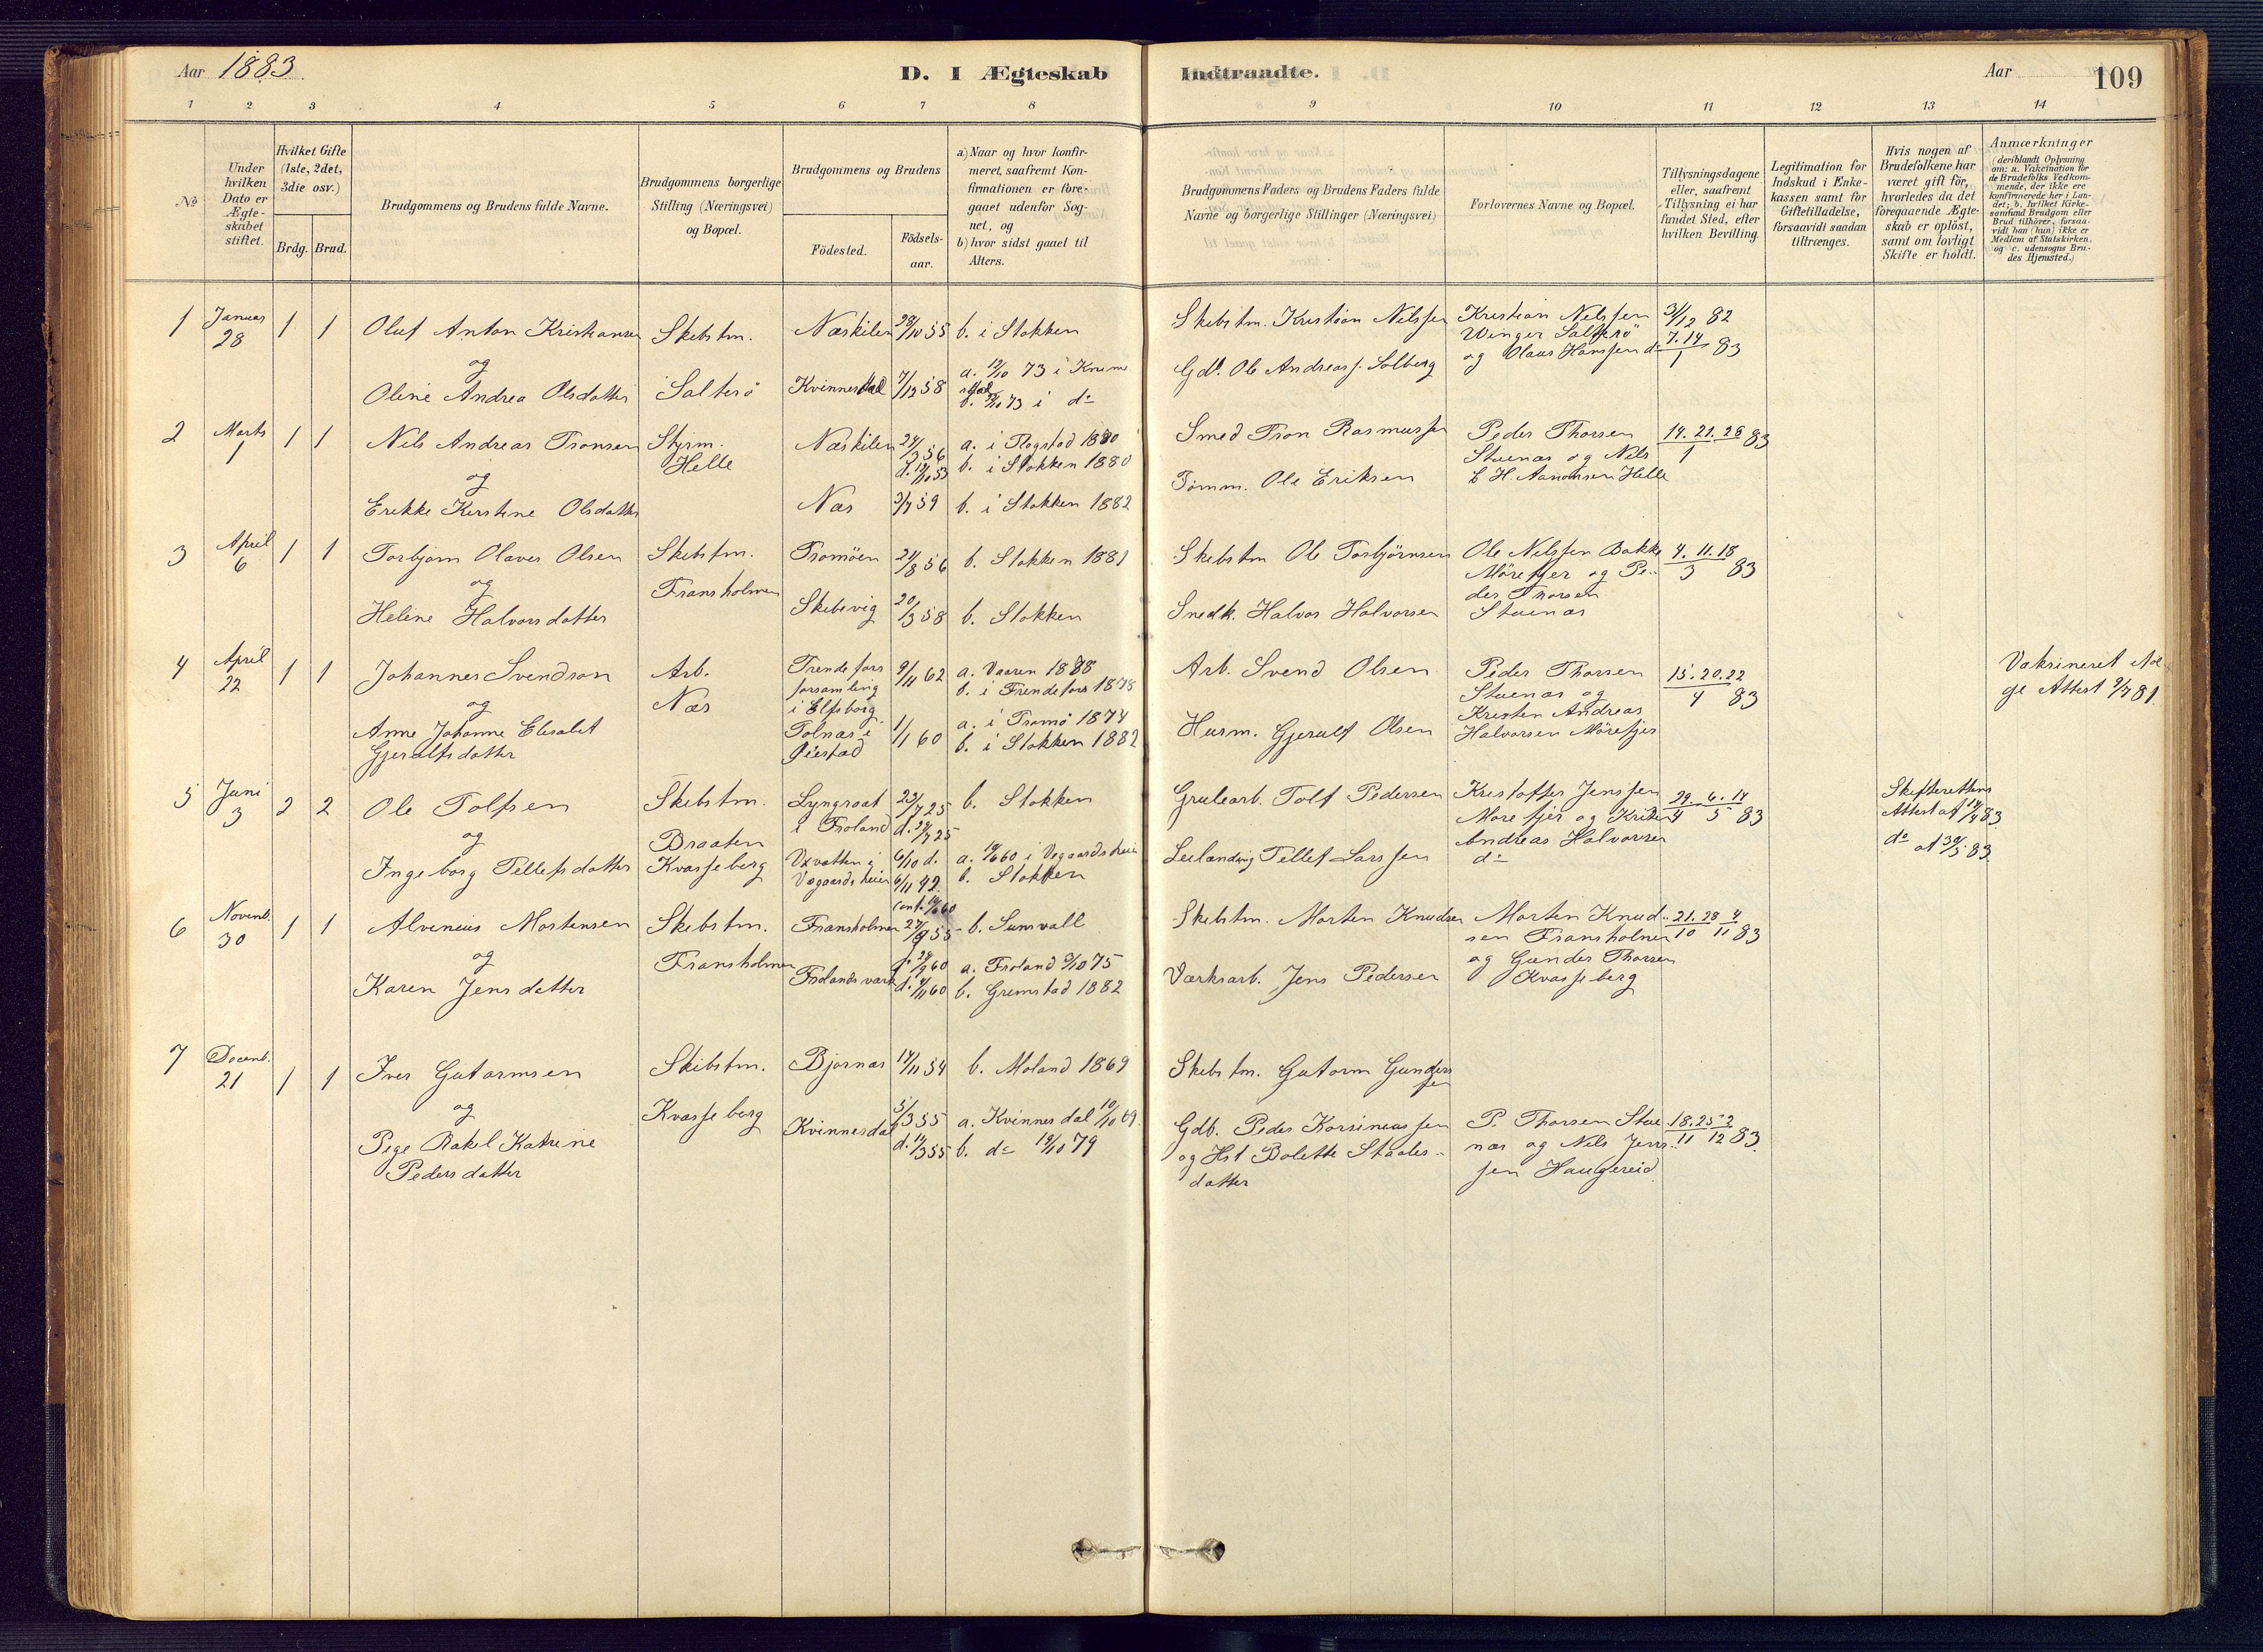 Aar 1883.
D. I Ægteskab
Indtraadte.
Aar
109
1 2 3 4 5 6 7 8 9 10 11 12 13 14
No
Under
hvilken
Dato er
Ægte-
skabet
stiftet.
Hvilket Gifte
(1ste, 2det,
3die osv.)
Brdg. Brud.
Brudgommens og Brudens fulde Navne.
Brudgommens borgerlige
Stilling (Næringsvei)
og Bopæl.
Brudgommens og Brudens
Födested.
Födsels-
aar.
a) Naar og hvor konfir-
meret, saafremt Kon-
firmationen er fore-
gaaet udenfor Sog-
net, og
b) hvor sidst gaaet til
Alters.
Brudgommens Faders og Brudens Faders fulde
Navne og borgerlige Stillinger (Næringsvei)
Forlovernes Navne og Bopæl.
Tillysningsdagene
eller, saafremt
Tillysning ei har
fundet Sted, efter
hvilken Bevilling.
Legitimation for
Indskud i Enke-
kassen samt for
Giftetilladelse,
forsaavidt saadan
tiltrænges.
Hvis nogen af
Brudefolkene har
været gift för,
hvorledes da det
foregaaende Ægte-
skab er oplöst,
samt om lovligt
Skifte er holdt.
Anmærkninger
(deriblandt Oplysning
om: a. Vakcination for
de Brudefolks Vedkom-
mende, der ikke ere
konfirmerede her i Lan-
det; b. hvilket Kirke-
samfund Brudgom eller
Brud tilhörer, forsaa-
vidt han (hun) ikke er
Medlem af Statskirken,
og c. udensogns Bru-
des Hjemsted.)
1 Januar 28 1 1
Oluf Anton Kristiansen
og
Oline Andrea Olsdatter
Skibstm.
Salterö
Næskilen 28/10 55
Kvinnesdal 7/12 58
b. i Stokken
a. 12/10 73 i Kvinne
b. 73 i do
Skibstm. Kristian Nilssen
Gdb. Ole Andreass. Solberg
Kristian Nilssen
Winger Salterö
og Olaus Hanssen do
31/12 82
7. 14/1 83
2 Marts 1 1 1
Nils Andreas Tronsen
og
Erikke Kirstine Olsdatter
Styrm.
Helle
Næskilen
Næs 3/7 59
a. i Flogstad 1880
b. i Stokken 1880
b. i Stokken 1882
Smed Tron Rasmussen
Tömm. Ole Eriksen
Peder Thorsen
Stuenæs og Nils
E H. Aanonsen Helle
14. 21. 28/1 83
3 April 6 1 1
Torbjørn Olaves Olsen
og
Helene Halvorsdatter
Skibstm.
Fransholmen
Tromöen 24/8 56
Skibsvig 20/3 58
b. Stokken 1881
b. Stokken
Skibstm Ole Torbjörnsen
Snedk. Halvor Halvorsen
Ole Nilssen Bakke
Mörefjer og Pe-
der Thorsen
Stuenæs
4. 11. 18/3 83
4 April 22 1 1
Johannes Svendsøn
og
Anne Johanne Elisabet
Gjerulfsdatter
Arb.
Næs
Trendefors
forsamling
i Elfsborg
Tolnæs i
Öiestad
9/11 62
1/1 60
a. Vaaren 1878
b. i Trendefors 1878
a. i Tromö 1874
b. i Stokken 1882
Arb. Svend Olsen
Husm. Gjerulf Olsen
Peder Thorsen
Stuenæs og
Kristen Andreas
Halvorsen Mörefjer
15. 20. 22/4 83
Vaksineret ifol
ge Attest 9/7 81
5 Juni 3 2 2
Ole Tolfsen
og
Ingeborg Tellefsdatter
Skibstm.
Braaten
Kvasseberg
Lyngroat
i Froland
Uxvatten i
Vegaardsheien
b. Stokken
a. 14/6 60 i Vegaardsheien
b. Stokken
Grubearb. Tolf Pedersen
Leilænding Tellef Larssen
Kristoffer Jenssen
Mörefjer og Kristen
Andreas Halvorsen
do
29/4 6. 14/5 83
Skifterettens
Attest af 14/4 83.
do af 30/5 83
6 Novemb. 30 1 1
Alvenius Mortensen
og
Karen Jensdatter
Skibstm.
Fransholmen
Fransholmen 27/9 55
Frolandsværk
b. Sunsvall
a. Froland 3/10 75
b. Grimstad 1882
Skibstm. Morten Knudsen
Værksarb. Jens Pedersen
Morten Knud-
sen Fransholmen
og Gunder Thorsen
Kvasseberg
21. 28/10 4/11 83
7 Decemb. 21 1 1
Iver Gutormsen
og
Pige Rakel Katrine
Pedersdatter
Skibstm.
Kvasseberg
Bjornæs 17/11 54
Kvinnesdal 5/3 55
d. 11/3 55
b. Moland 1869
a. Kvinnesdal 10/10 69.
b. do 19/10 79
Skibstm. Gutorm Gunders
sen
Gdb. Peder Korsineussen
og Hst Bolette Staales-
datter
P. Thorsen Stue
næs og Nils Jens-
sen Haugereid.
18. 25/11 2/12 83.